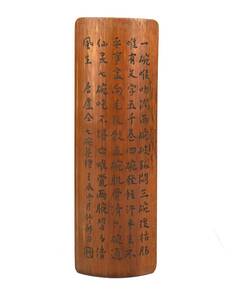 一碗喉吻潤兩碗破孤悶三碗搜枯腸
唯有文字五千卷四碗發輕汗平生不
平事盡向毛孔散五碗肌骨清六碗通
仙灵七碗吃不得也唯覺兩腋習習清
風生 唐盧仝七碗茶